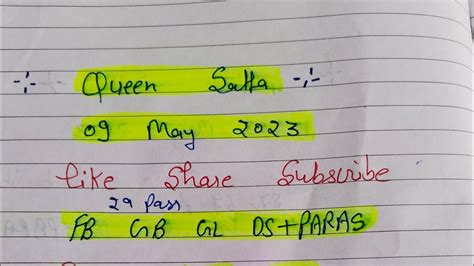 -:- Queen Satta -:-
09 May 2023
like Share Subscribe
29 Pass
FB GB GL DS+PARAS